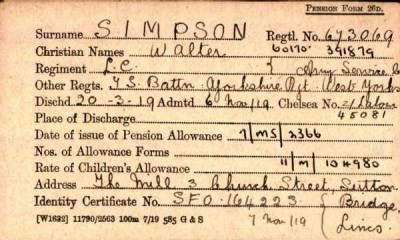 PENSION FORM 26D.
Surname SIMPSON Regtl. No. 673069
Christian Names Walter 60170 391879
Regiment L.C. { Army Service C
Other Regts. Y S Battn Yorkshire Rgt. West Yorks
Dischd 20-3-19 Admtd 6 Nov/19 Chelsea No. 21 Labour
Place of Discharge 45081
Date of issue of Pension Allowance 7/MS/2366
Nos. of Allowance Forms
Rate of Children's Allowance 11/M/104980
Address The Mill 3 Church Street, Sutton
Identity Certificate No. SFO. 164223 { Bridge,
[W1632] 11790/2563 100m 7/19 585 G & S 7 Nov/19 { Lincs.